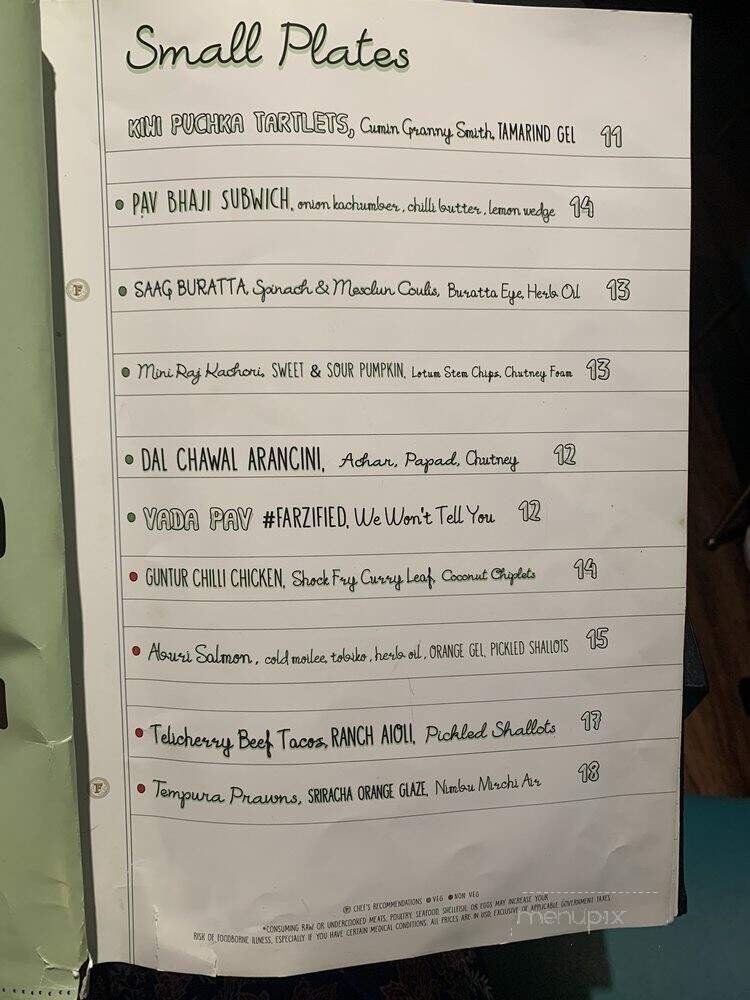 Small Plates
KIWI PUCHKA TARTLETS, Cumin Granny Smith, TAMARIND GEL 11
PAV BHAJI SUBWICH, onion kachumber, chilli butter, lemon wedge 14
F SAAG BURATTA, Spinach & Mesclun Coulis, Buratta Eye, Herb Oil 13
Mini Raj Kachori, SWEET & SOUR PUMPKIN, Lotum Stem Chips, Chutney Foam 13
DAL CHAWAL ARANCINI, Achar, Papad, Chutney 12
VADA PAV #FARZIFIED, We Won't Tell You 12
GUNTUR CHILLI CHICKEN, Shock Fry Curry Leaf, Coconut Chiplets 14
Aburi Salmon, cold moilee, tobiko, herb oil, ORANGE GEL, PICKLED SHALLOTS 15
Telicherry Beef Tacos, RANCH AIOLI, Pickled Shallots 17
F Tempura Prawns, SRIRACHA ORANGE GLAZE, Nimbu Mirchi Air 18
F CHEF'S RECOMMENDATIONS VEG NON VEG
*CONSUMING RAW OR UNDERCOOKED MEATS, POULTRY, SEAFOOD, SHELLFISH, OR EGGS MAY INCREASE YOUR
RISK OF FOODBORNE ILLNESS, ESPECIALLY IF YOU HAVE CERTAIN MEDICAL CONDITIONS. ALL PRICES ARE IN USD, EXCLUSIVE OF APPLICABLE GOVERNMENT TAXES
menupix